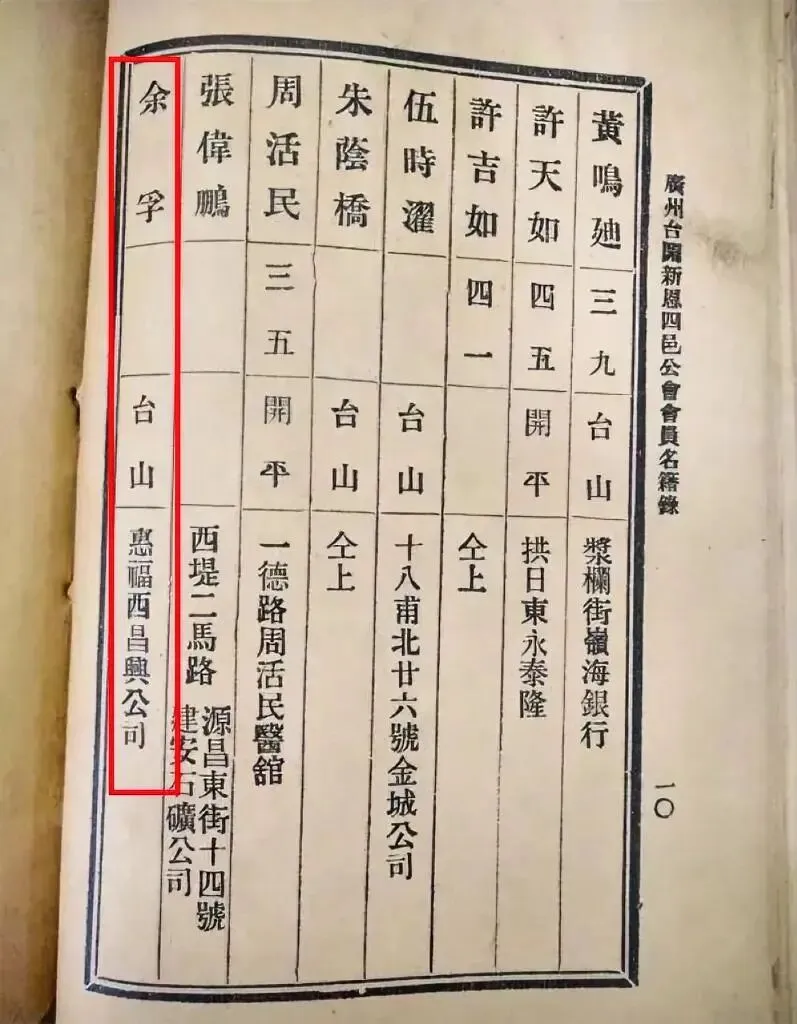 廣州台開新恩四邑公會會員名籍錄
一〇
黃鳴廸 三九 台山 漿欄街嶺海銀行
許天如 四五 開平 拱日東永泰隆
許吉如 四一 仝上
伍時濯 台山 十八甫北廿六號金城公司
朱蔭橋 台山 仝上
周活民 三五 開平 一德路周活民醫舘
張偉鵬 西堤二馬路 源昌東街十四號
建安石礦公司
余孚 台山 惠福西昌興公司